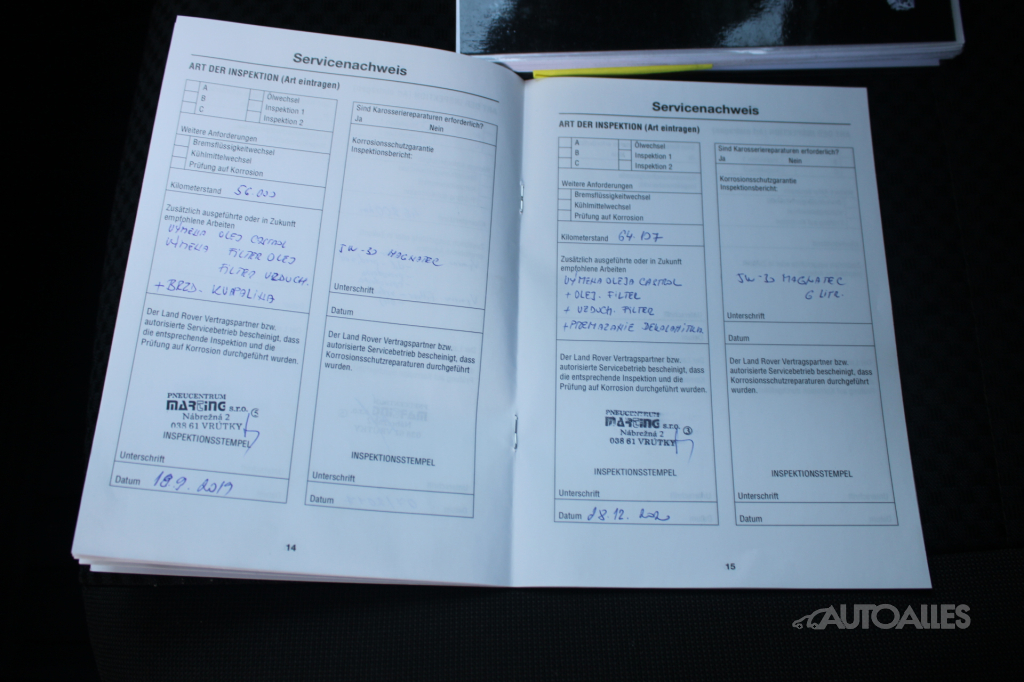 Servicenachweis
ART DER INSPEKTION (Art eintragen)
A
B
C
Ölwechsel
Inspektion 1
Inspektion 2
Weitere Anforderungen
Bremsflüssigkeitwechsel
Kühlmittelwechsel
Prüfung auf Korrosion
Kilometerstand 56 000
Zusätzlich ausgeführte oder in Zukunft
empfohlene Arbeiten
VÝMENA OLEJ CASTROL
VÝMENA FILTER OLEJ
FILTER VZDUCH.
+ BRZD. KVAPALINA
Der Land Rover Vertragspartner bzw.
autorisierte Servicebetrieb bescheinigt, dass
die entsprechende Inspektion und die
Prüfung auf Korrosion durchgeführt wurden.
PNEUCENTRUM
s.r.o.
Nábrežná 2
038 61 VRÚTKY
INSPEKTIONSSTEMPEL
Unterschrift
Datum 18.9.2019
Sind Karosseriereparaturen erforderlich?
Ja Nein
Korrosionsschutzgarantie
Inspektionsbericht:
5W-30 MAGNATEC
Unterschrift
Datum
Der Land Rover Vertragspartner bzw.
autorisierte Servicebetrieb bescheinigt, dass
Korrosionsschutzreparaturen durchgeführt
wurden.
INSPEKTIONSSTEMPEL
Unterschrift
Datum
14
Servicenachweis
ART DER INSPEKTION (Art eintragen)
A
B
C
Ölwechsel
Inspektion 1
Inspektion 2
Weitere Anforderungen
Bremsflüssigkeitwechsel
Kühlmittelwechsel
Prüfung auf Korrosion
Kilometerstand 64
Zusätzlich ausgeführte oder in Zukunft
empfohlene Arbeiten
VÝMENA OLEJA CASTROL
+ OLEJ. FILTER
+ VZDUCH. FILTER
Der Land Rover Vertragspartner bzw.
autorisierte Servicebetrieb bescheinigt, dass
die entsprechende Inspektion und die
Prüfung auf Korrosion durchgeführt wurden.
PNEUCENTRUM
s.r.o.
Nábrežná 2
038 61 VRÚTKY
INSPEKTIONSSTEMPEL
Unterschrift
Datum 28.12.2020
Sind Karosseriereparaturen erforderlich?
Ja Nein
Korrosionsschutzgarantie
Inspektionsbericht:
5W-30 MAGNATEC
6 LITR.
Unterschrift
Datum
Der Land Rover Vertragspartner bzw.
autorisierte Servicebetrieb bescheinigt, dass
Korrosionsschutzreparaturen durchgeführt
wurden.
INSPEKTIONSSTEMPEL
Unterschrift
Datum
15
AUTOALLES